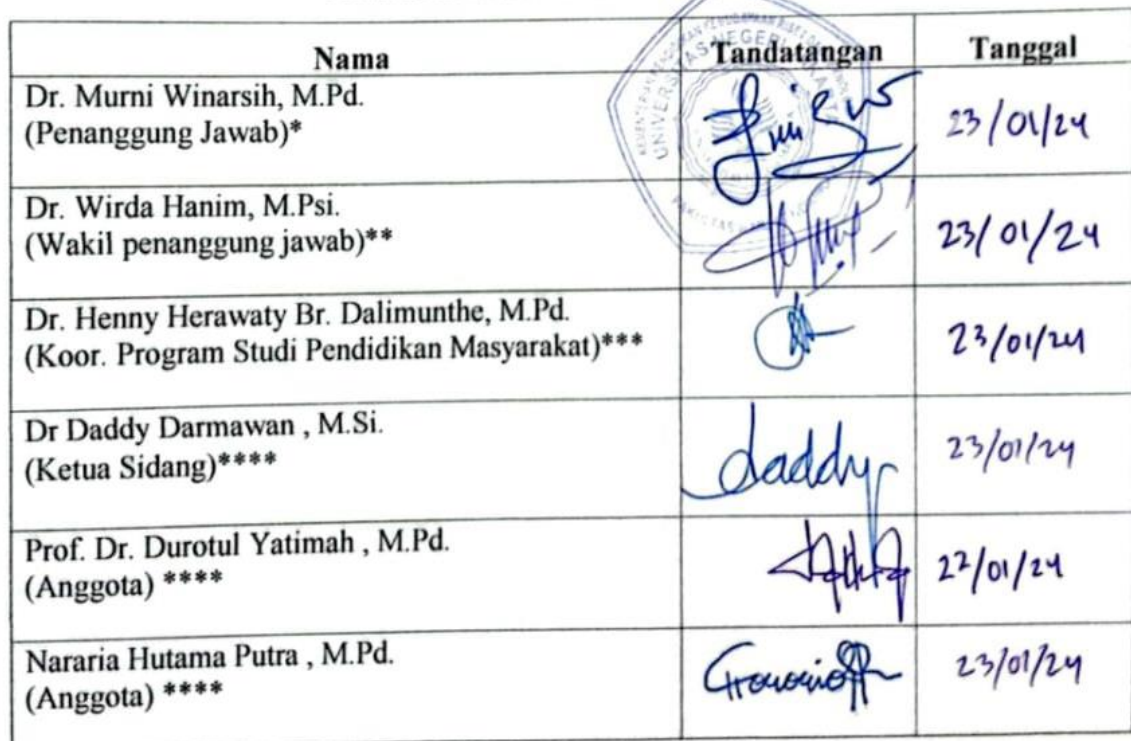 Nama Tandatangan Tanggal
Dr. Murni Winarsih, M.Pd.
(Penanggung Jawab)* 23/01/24
Dr. Wirda Hanim, M.Psi.
(Wakil penanggung jawab)** 23/01/24
Dr. Henny Herawaty Br. Dalimunthe, M.Pd.
(Koor. Program Studi Pendidikan Masyarakat)*** 23/01/24
Dr Daddy Darmawan , M.Si.
(Ketua Sidang)**** daddy 23/01/24
Prof. Dr. Durotul Yatimah , M.Pd.
(Anggota) **** 22/01/24
Nararia Hutama Putra , M.Pd.
(Anggota) **** 23/01/24
UNIVERSITAS NEGERI